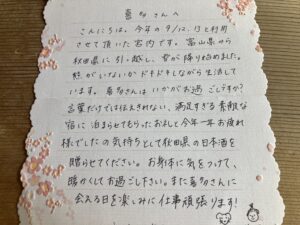 喜多さんへ
こんにちは、今年の9/12、13と利用
させて頂いた宮内です。富山県から
秋田県に引っ越し、雪が降り始めました。
熊がいないかドキドキしながら生活して
います。喜多さんはいかがお過ごしですか?
言葉だけでは伝えきれない、満足すぎる素敵な
宿に泊まらせてもらったお礼と今年一年お疲れ
様でしたの気持ちとして秋田県の日本酒を
贈らせてください。お身体に気をつけて、
暖かくしてお過ごし下さい。また喜多さんに
会える日を楽しみに仕事頑張ります!